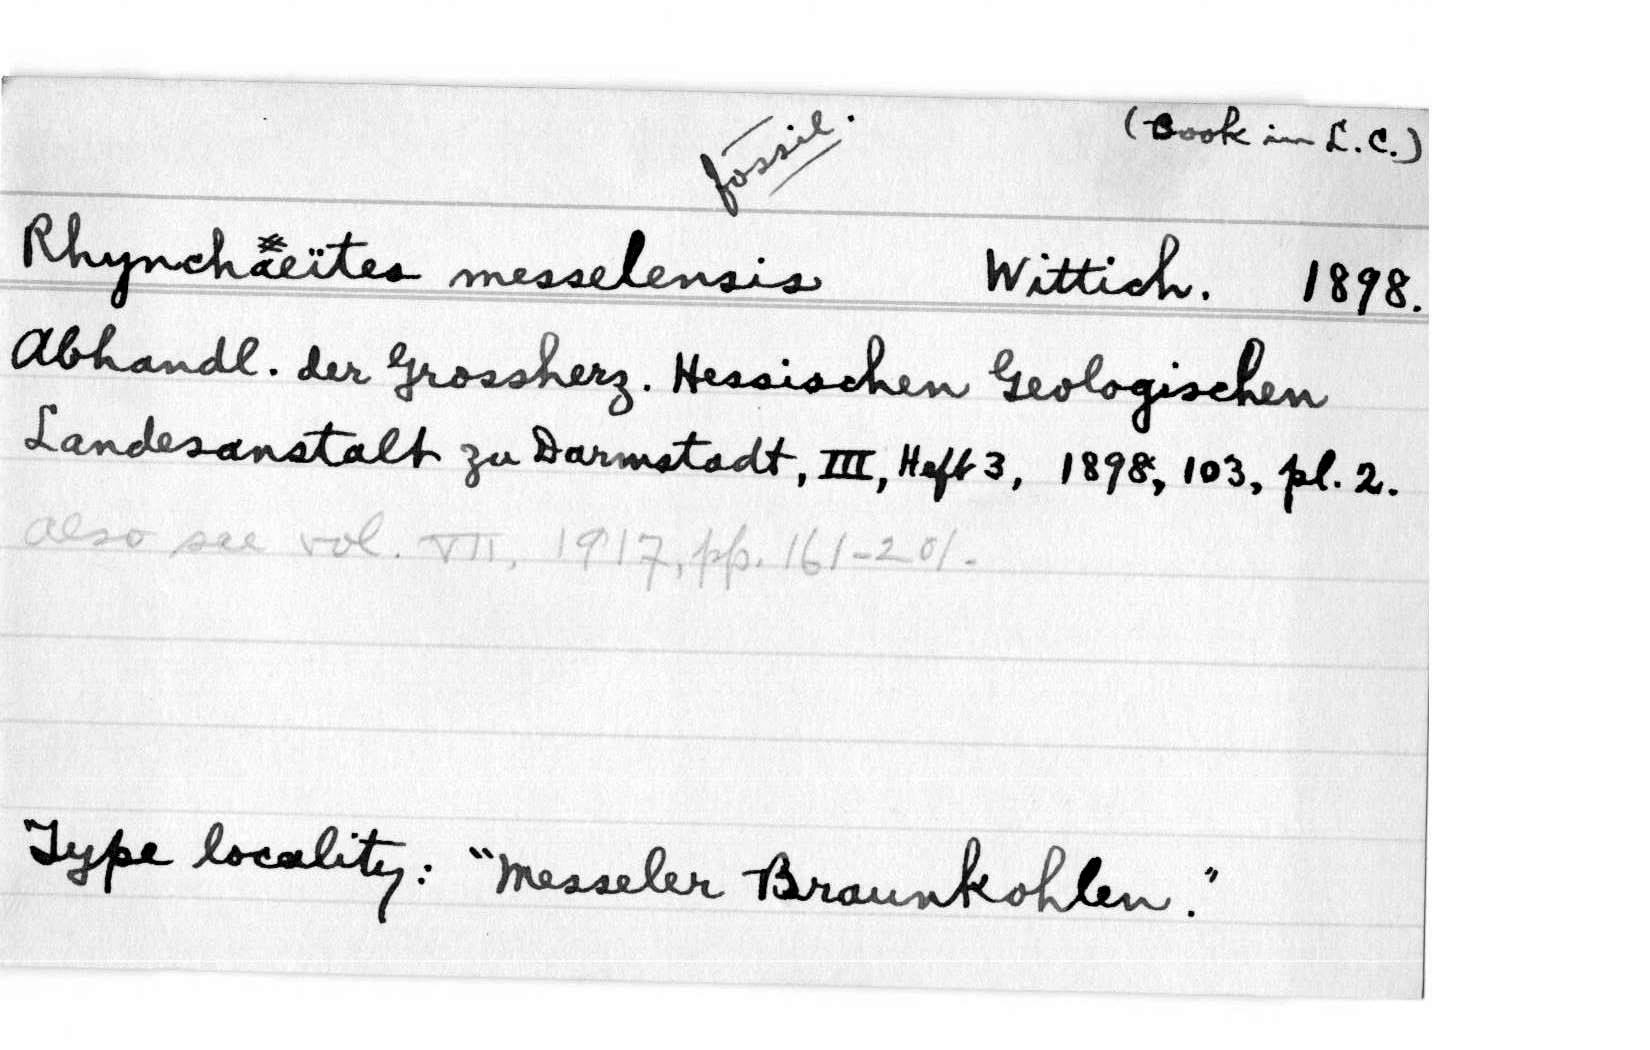 fossil.
(Book in L.C.)
Rhynchaeïtes messelensis Wittich. 1898.
Abhandl. der Grossherz. Hessischen Geologischen
Landesanstalt zu Darmstadt, III, Heft 3, 1898, 103, pl. 2.
also see vol. VII, 1917, pp. 161-201.
Type locality: "Messeler Braunkohlen."